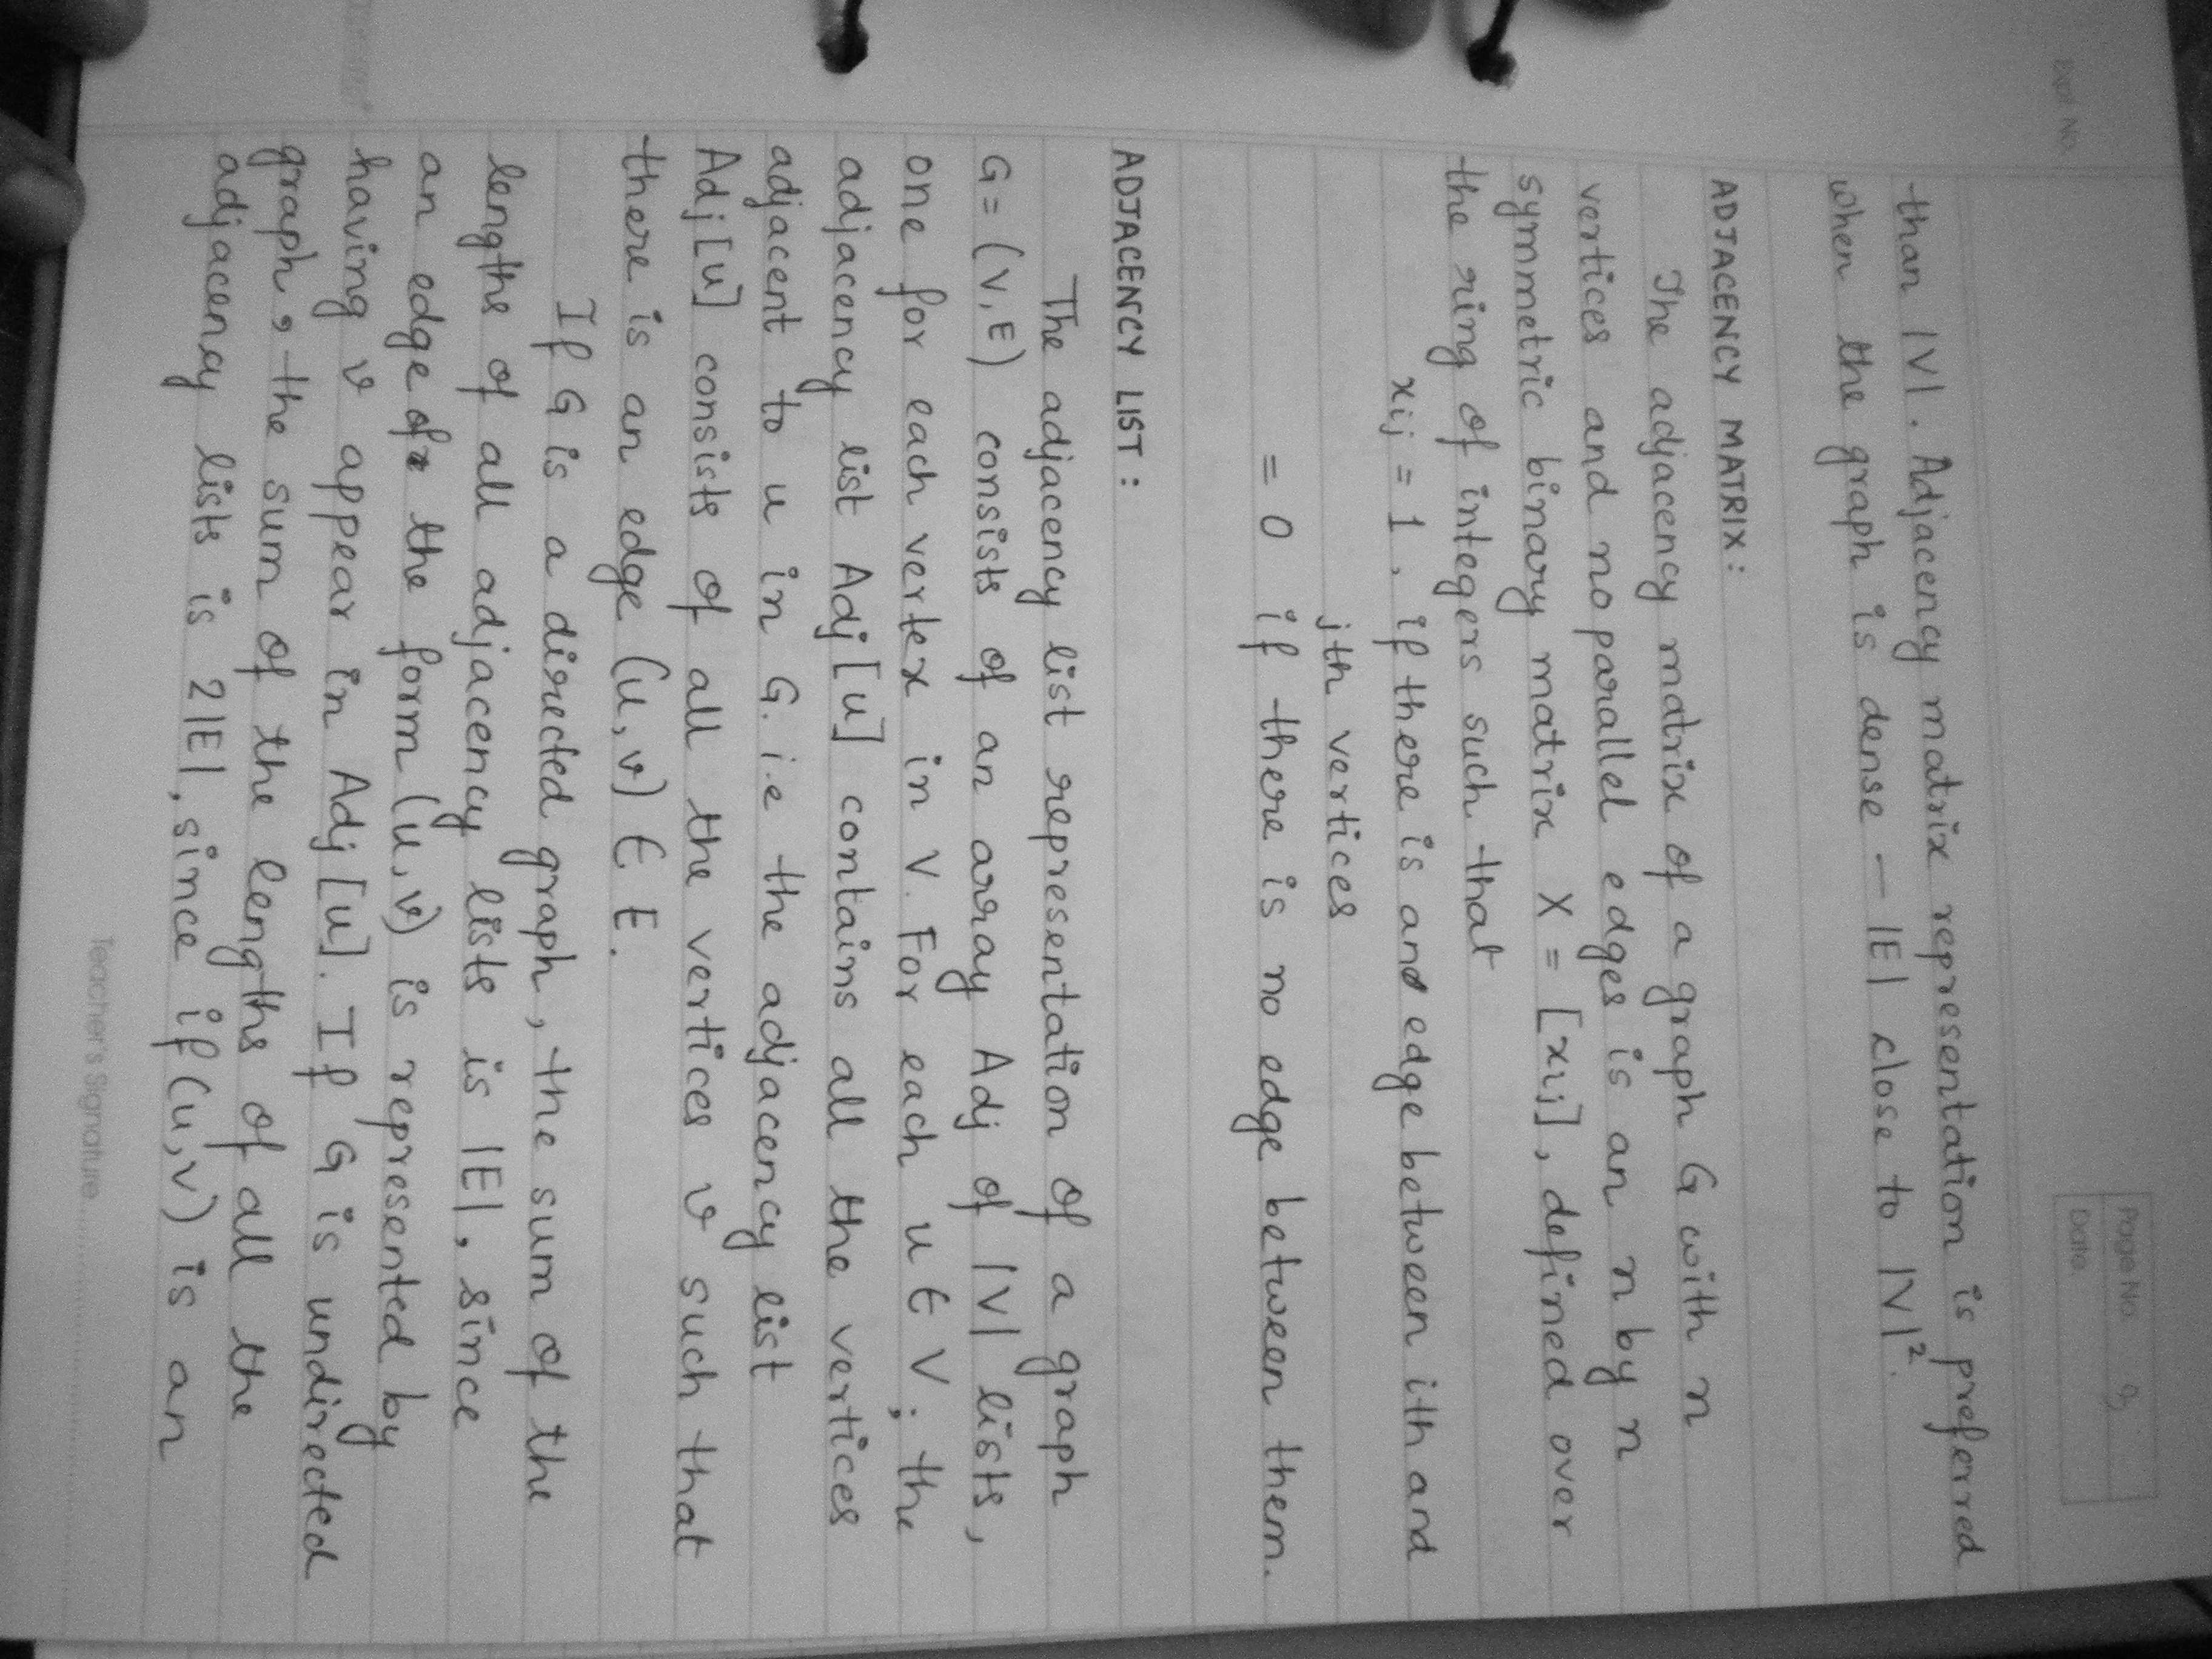 Expt. No.
Page No. 9
Date.
than |V|. Adjacency matrix representation is preferred
when the graph is dense — |E| close to |V|².
ADJACENCY MATRIX:
The adjacency matrix of a graph G with n
vertices and no parallel edges is an n by n
symmetric binary matrix X = [xij], defined over
the ring of integers such that
xij = 1, if there is and edge between ith and
jth vertices
= 0 if there is no edge between them.
ADJACENCY LIST:
The adjacency list representation of a graph
G = (V, E) consists of an array Adj of |V| lists,
one for each vertex in V. For each u ∈ V; the
adjacency list Adj[u] contains all the vertices
adjacent to u in G. i.e the adjacency list
Adj[u] consists of all the vertices v such that
there is an edge (u, v) ∈ E.
If G is a directed graph, the sum of the
lengths of all adjacency lists is |E|, since
an edge of the form (u, v) is represented by
having v appear in Adj[u]. If G is undirected
graph, the sum of the lengths of all the
adjacency lists is 2|E|, since if (u, v) is an
Teacher's Signature